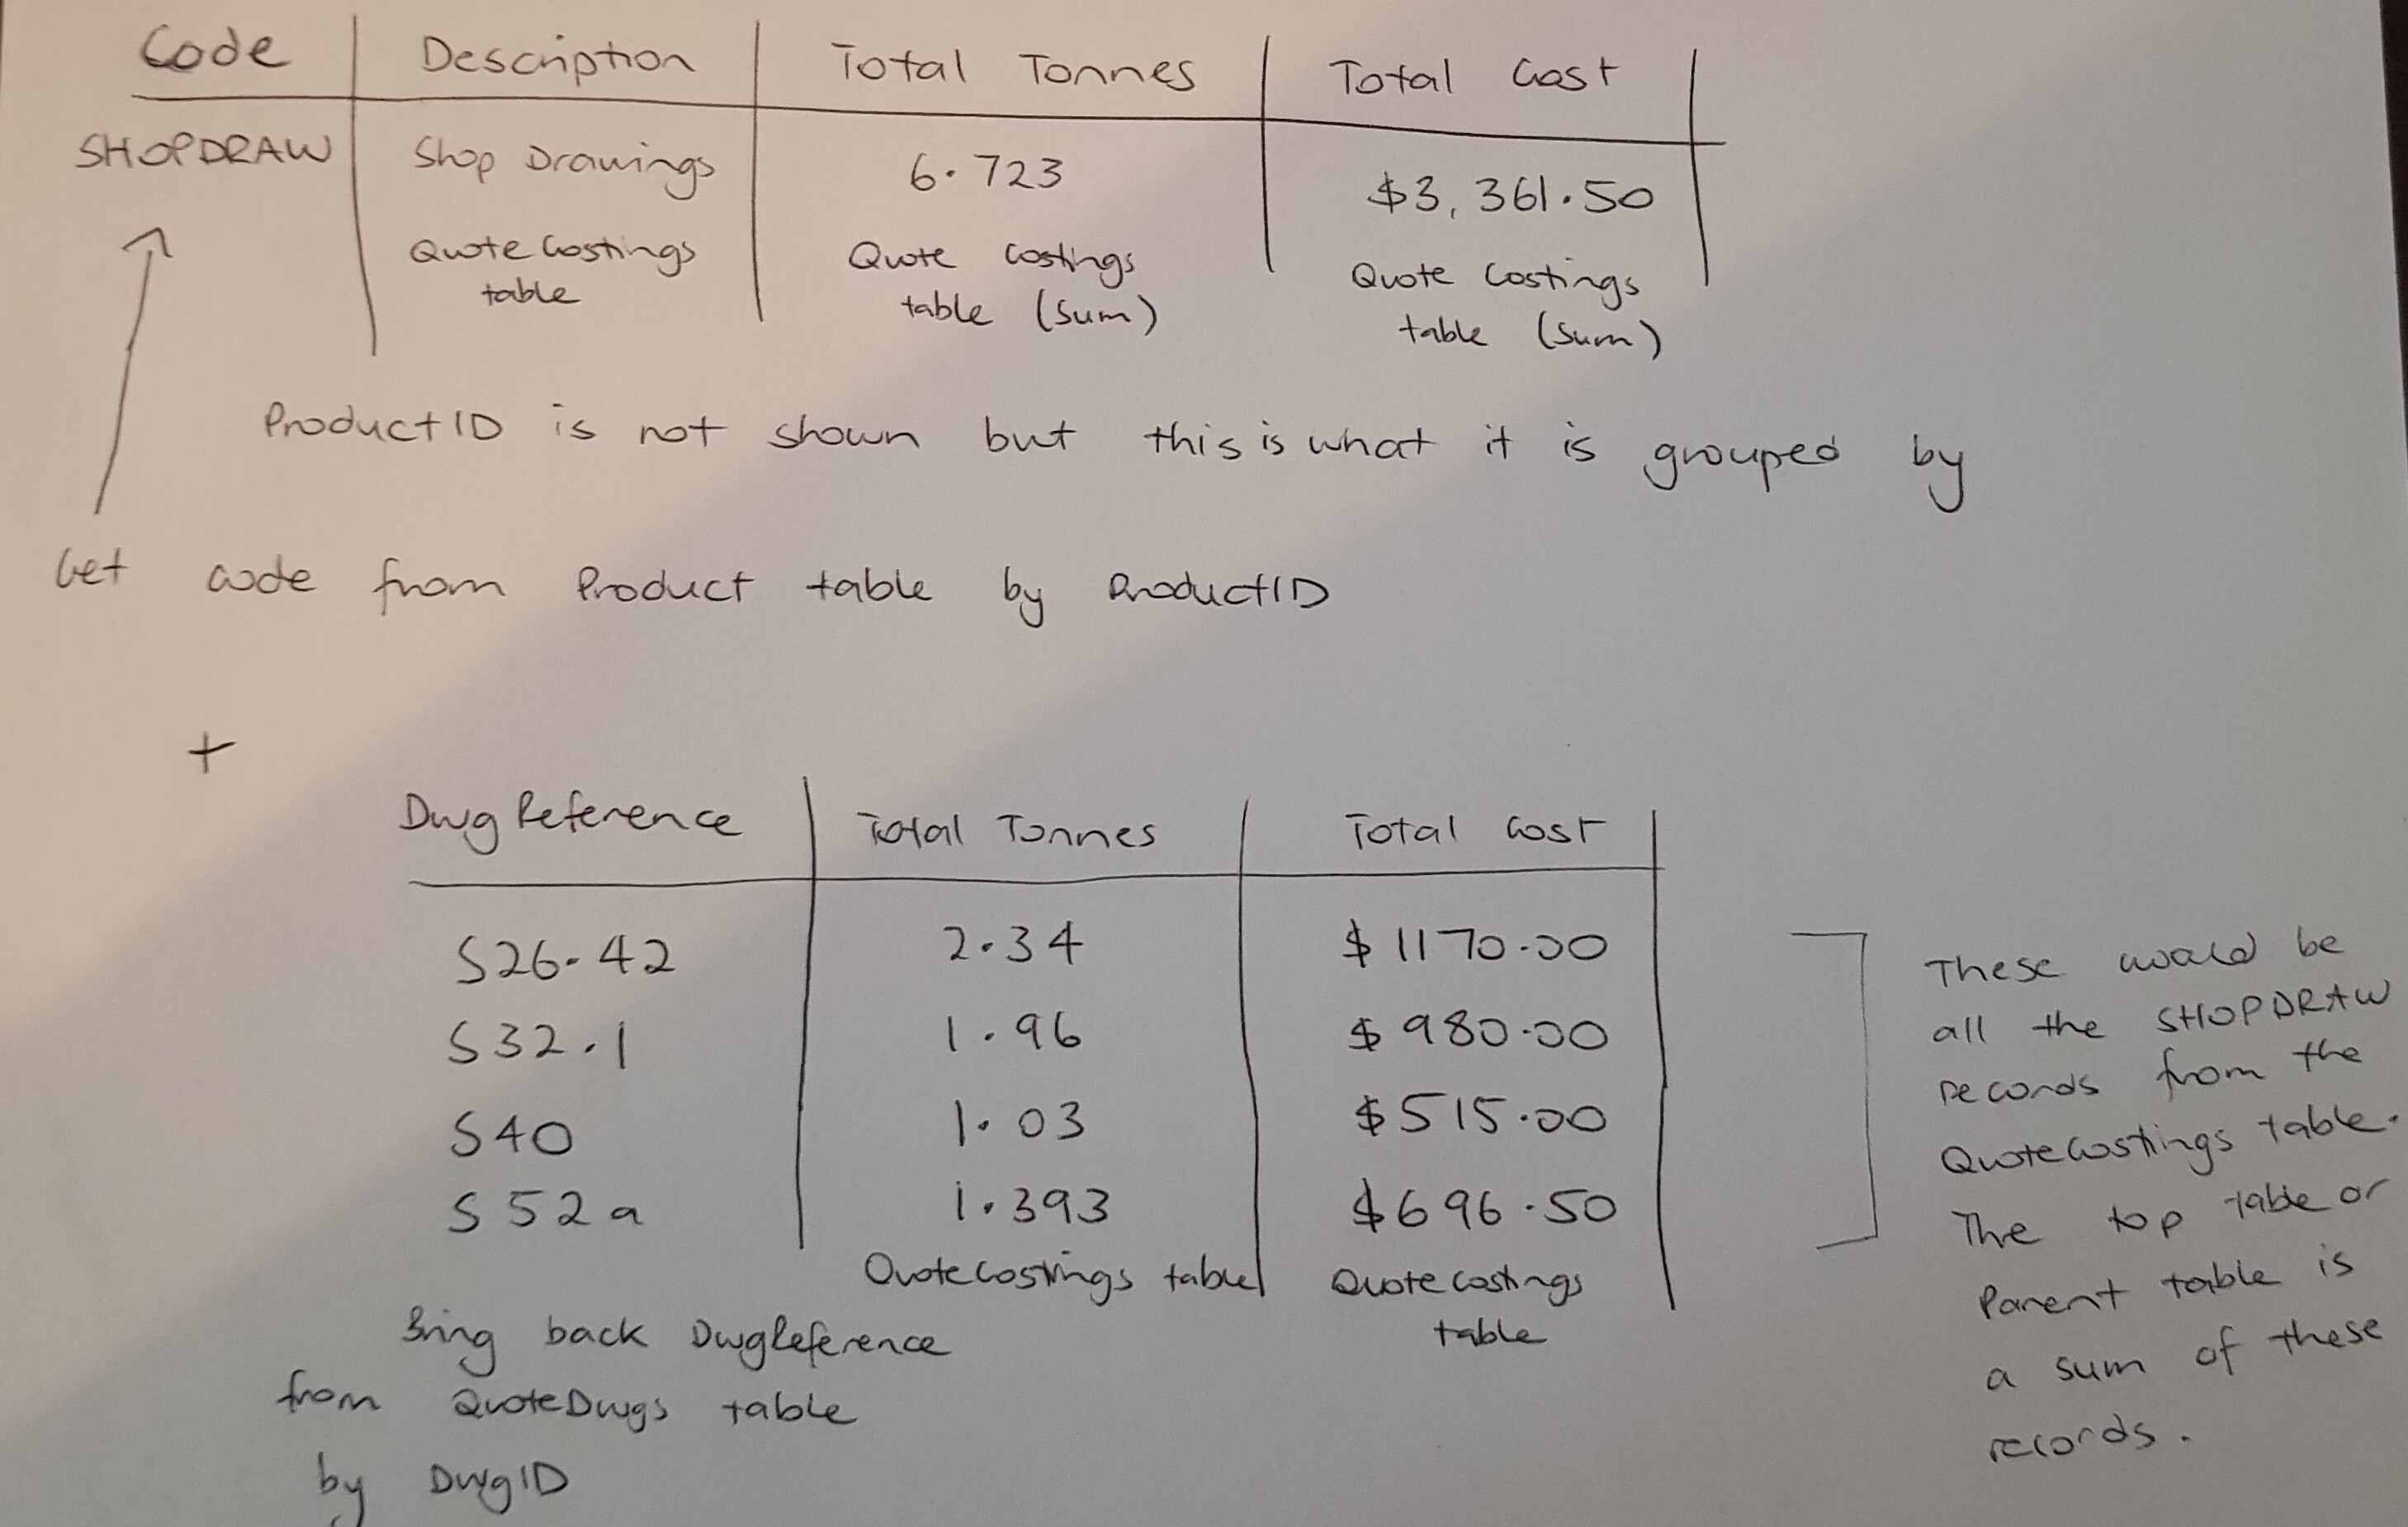 Code Description Total Tonnes Total Cost
SHOPDRAW Shop Drawings 6.723 $3,361.50
QuoteCostings Quote Costings Quote Costings
table table (sum) table (sum)
ProductID is not shown but this is what it is grouped by
Get code from Product table by ProductID
+
DwgReference Total Tonnes Total Cost
S26.42 2.34 $1170.00
S32.1 1.96 $980.00
S40 1.03 $515.00
S52a 1.393 $696.50
QuoteCostings table QuoteCostings
table
Bring back DwgReference
from QuoteDwgs table
by DwgID
These would be
all the SHOPDRAW
records from the
QuoteCostings table.
The top table or
Parent table is
a sum of these
records.